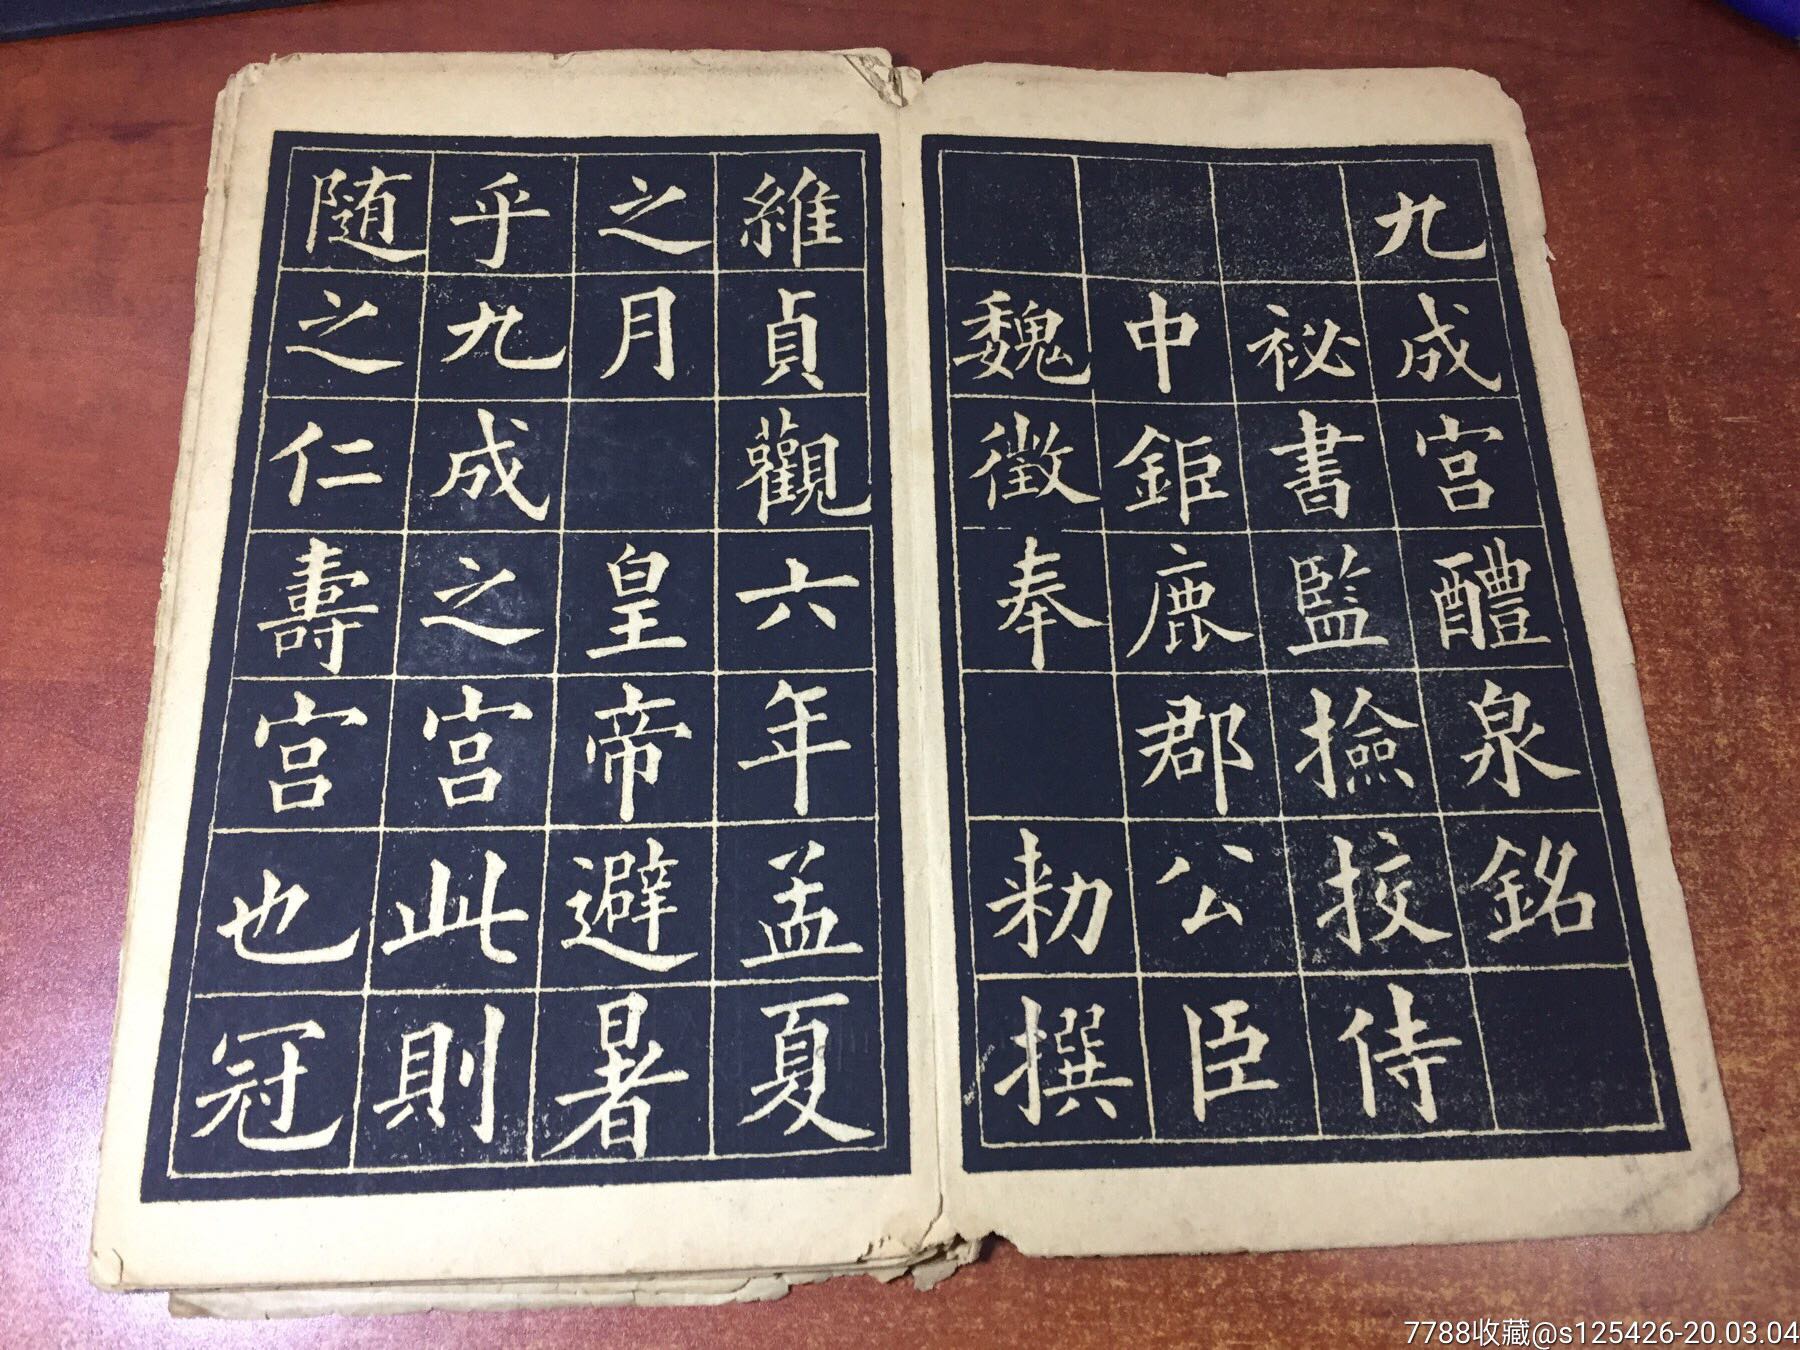 九成宮醴泉銘
祕書監撿挍侍
中鉅鹿郡公臣
魏徵奉勑撰
維貞觀六年孟夏
之月皇帝避暑
乎九成之宮此則
随之仁壽宮也冠
7788收藏@s125426-20.03.04